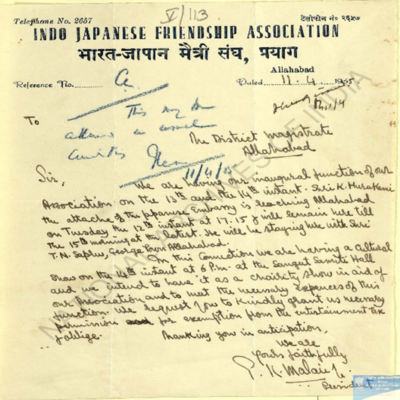 V/113
Telephone No. 2657
टेलीफोन नं० २६५७
INDO JAPANESE FRIENDSHIP ASSOCIATION
भारत-जापान मैत्री संघ, प्रयाग
Allahabad
Reference No. Dated 11-4 1955
This may be
To
The District Magistrate
Allahabad
11/4/55
Sir,
We are having our inaugural function of our
Association on the 13th and the 14th instant. Sri K. Murakami
the attache of the Japanese Embassy is reaching Allahabad
on Tuesday the 12th instant at 17.15 & will remain here till
the 15th morning at the latest. He will be staying here with Sri
T.N. Sapru, George Town Allahabad.
In this connection we are having a
Show on the 14th instant at 6 P.m. at the Sangit Samiti Hall
and we intend to have it as a charity show in aid of
our Association and to meet the necessary expenses of this
function. We request you to kindly grant us necessary
permission for exemption from the entertainment tax
& oblige.
Thanking you in anticipation,
We are
Yours faithfully
President